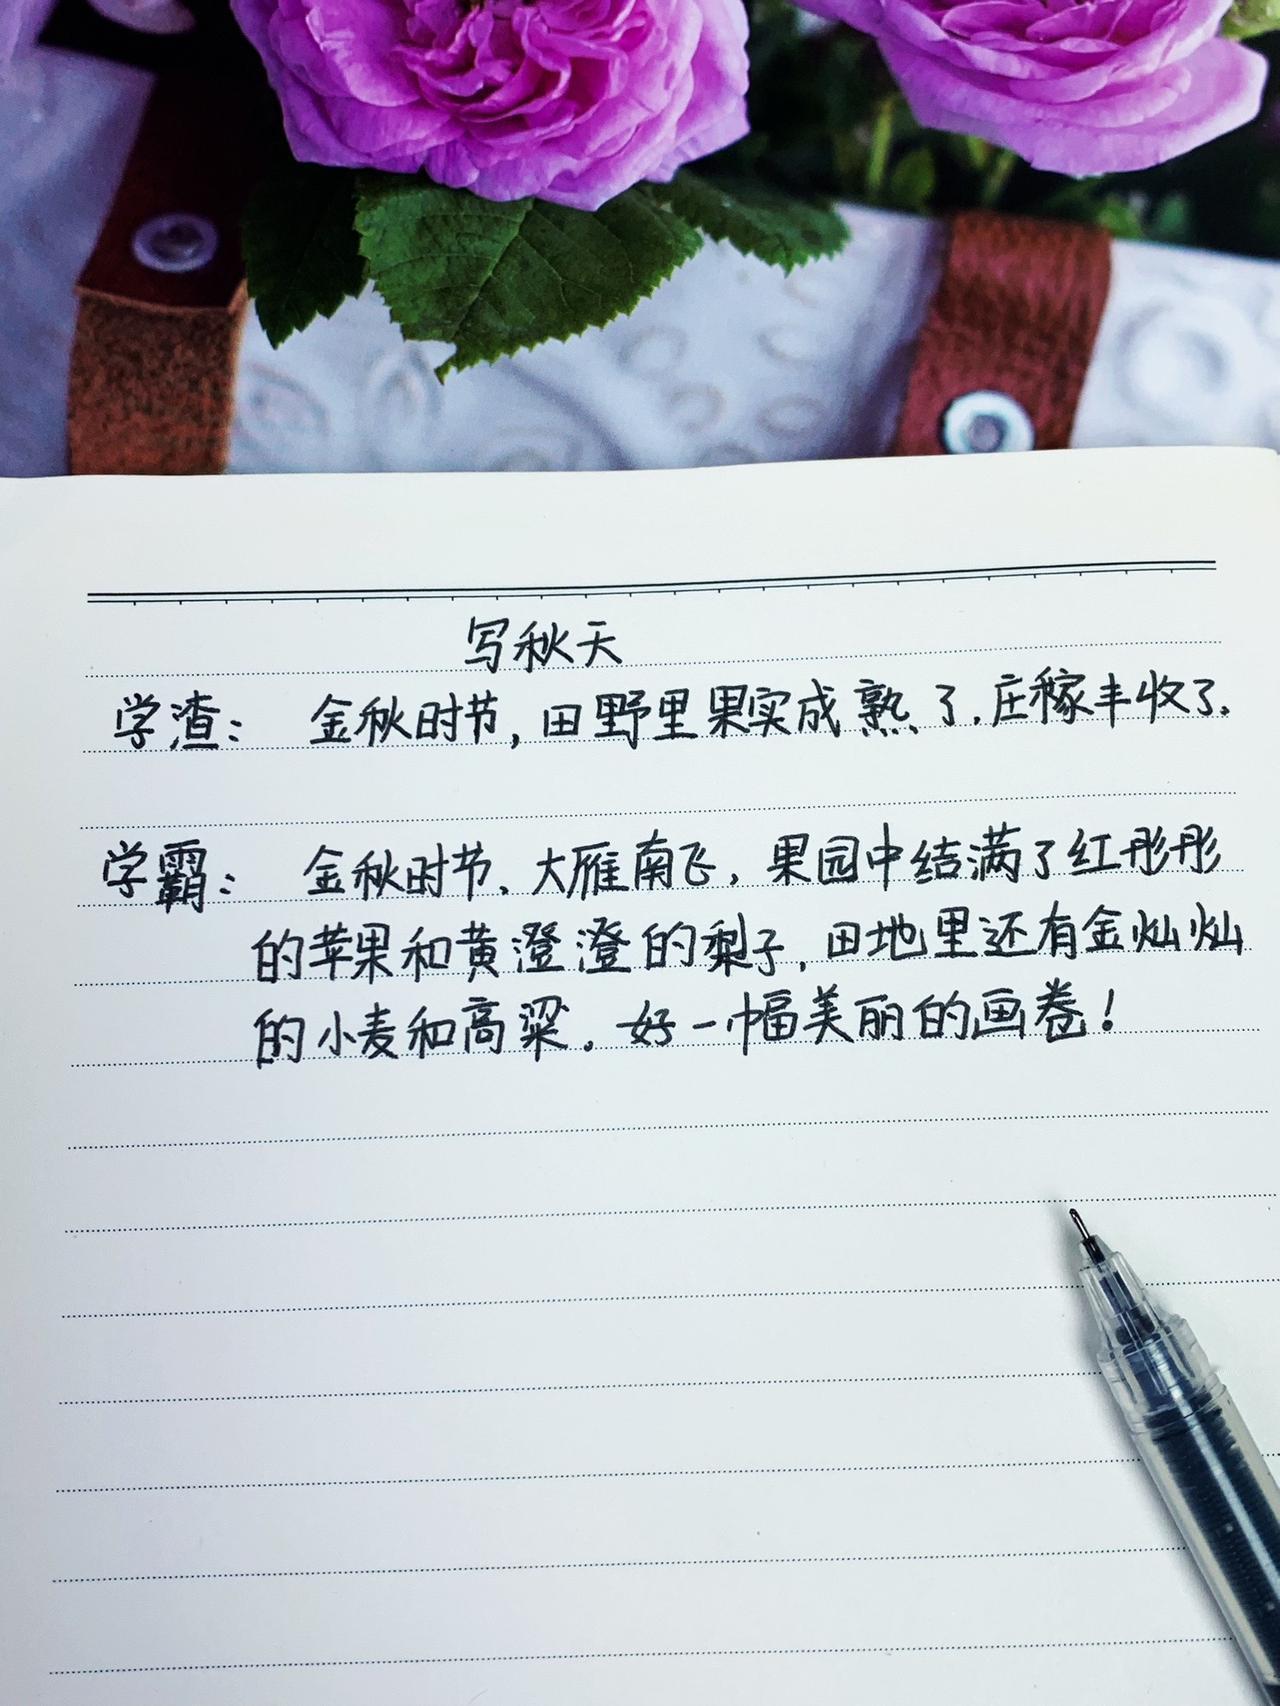 写秋天
学渣： 金秋时节，田野里果实成熟了，庄稼丰收了。
学霸： 金秋时节，大雁南飞，果园中结满了红彤彤
的苹果和黄澄澄的梨子，田地里还有金灿灿
的小麦和高粱。好一幅美丽的画卷！